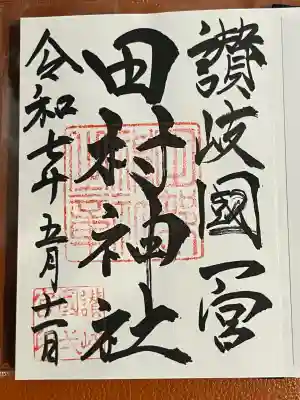 讃岐國一宮
田村神社
令和七年五月十一日